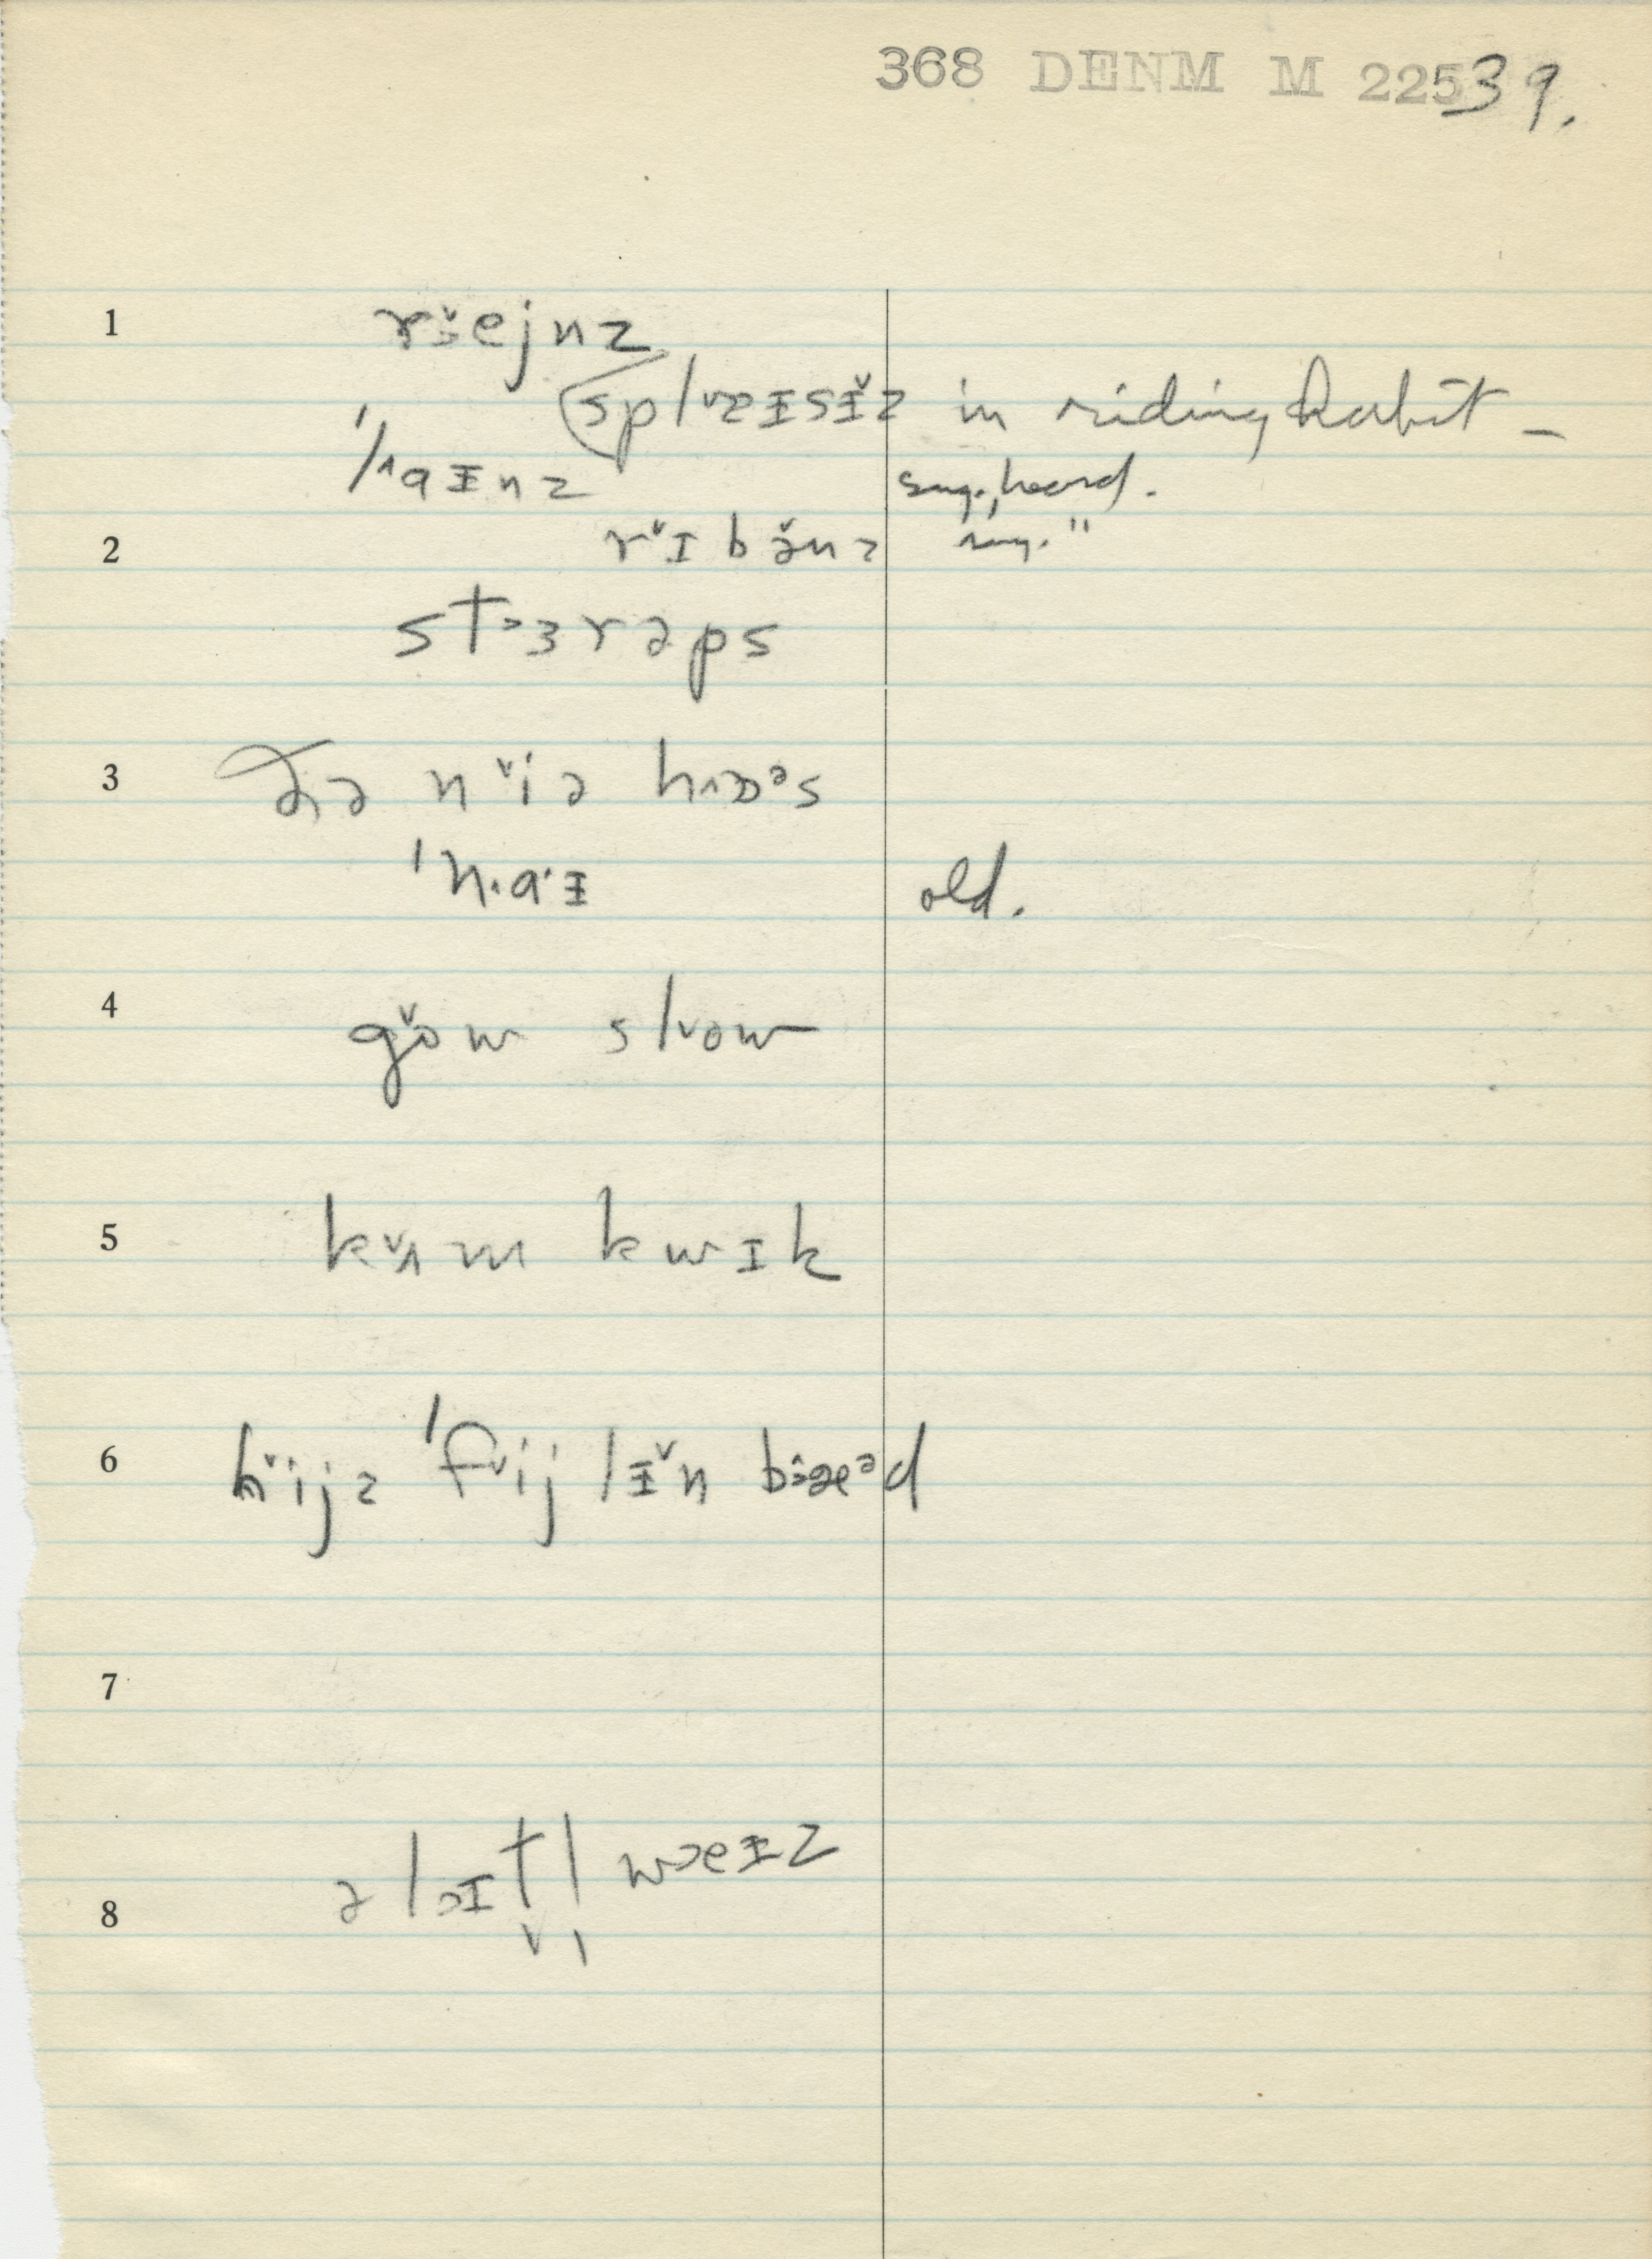 368 DENM M 225 39.
1 r˅ɜejnz
spl˅æᵻsᵻ̌z in riding habit –
ˈl˄aᵻnz sug., heard.
2 r˅ɪbə̌nz sug. "
st˃ɜrəps
3 ðə n˅iə hɒᵊs
ˈn.a.ᵻ old.
4 gǒw sl˅ow
5 k˅ʌm kwɪk
6 h˅ijz ˈf˅ijlᵻ̌n bæᵊd
7
8 ə l˃ɪtl w˃eᵻz